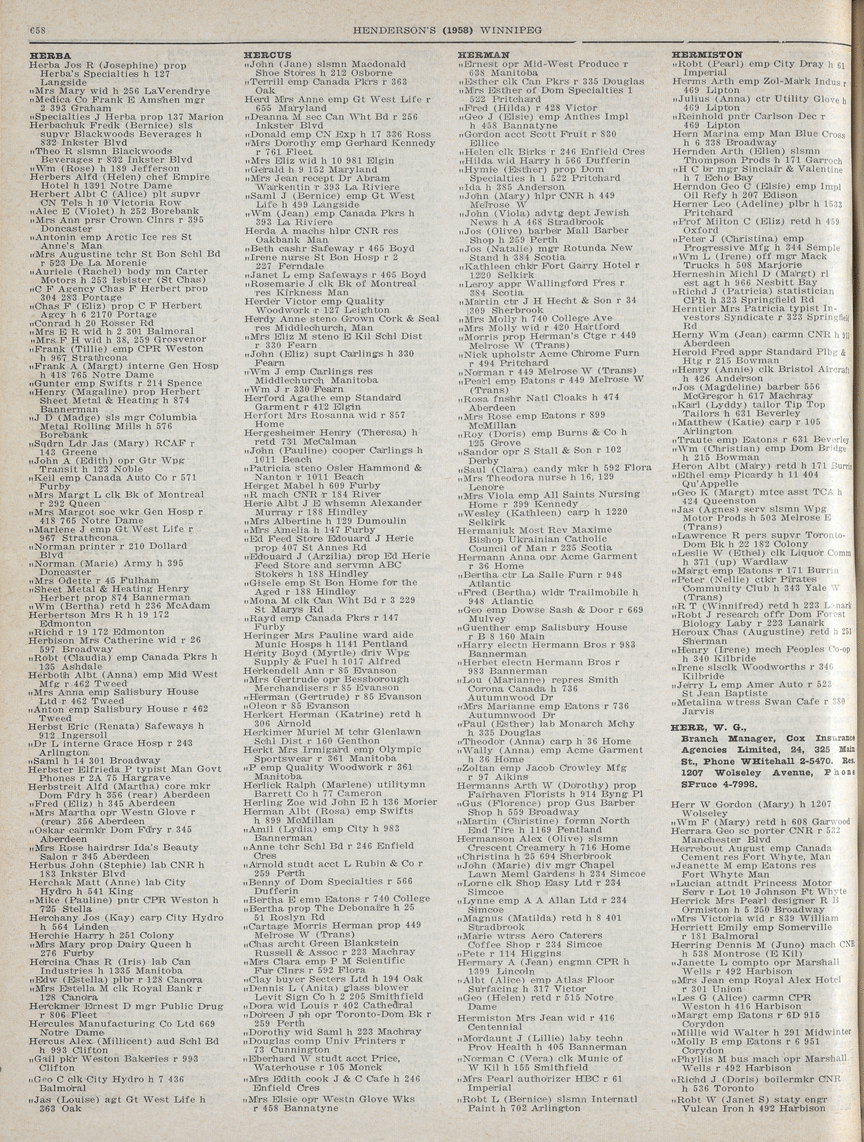 658
HENDERSON'S (1958) WINNIPEG
HERBA
Herba Jos R (Josephine) prop
Herba's Specialties h 127
Langside
„Mrs Mary wid h 256 LaVerendrye
„Medica Co Frank E Amshen mgr
2 393 Graham
„Specialties J Herba prop 137 Marion
Herbachuk Fredk (Bernice) sls
supvr Blackwoods Beverages h
832 Inkster Blvd
„Theo R slsmn Blackwoods
Beverages r 832 Inkster Blvd
„Wm (Rose) h 189 Jefferson
Herbers Alfd (Helen) chef Empire
Hotel h 1391 Notre Dame
Herbert Albt C (Alice) plt supvr
CN Tels h 10 Victoria Row
„Alec E (Violet) h 252 Borebank
„Mrs Ann prsr Crown Clnrs r 395
Doncaster
„Antonin emp Arctic Ice res St
Anne's Man
„Mrs Augustine tchr St Bon Schl Bd
r 523 De La Morenie
„Auriele (Rachel) body mn Carter
Motors h 253 Isbister (St Chas)
„C F Agency Chas F Herbert prop
304 283 Portage
„Chas F (Eliz) prop C F Herbert
Agcy h 6 2170 Portage
„Conrad h 20 Rosser Rd
„Mrs E R wid h 2 301 Balmoral
„Mrs F H wid h 38, 259 Grosvenor
„Frank (Tillie) emp CPR Weston
h 967 Strathcona
„Frank A (Margt) interne Gen Hosp
h 418 765 Notre Dame
„Gunter emp Swifts r 214 Spence
„Henry (Magaline) prop Herbert
Sheet Metal & Heating h 874
Bannerman
„J D (Madge) sls mgr Columbia
Metal Rolling Mills h 576
Borebank
„Sqdrn Ldr Jas (Mary) RCAF r
143 Greene
„John A (Edith) opr Gtr Wpg
Transit h 123 Noble
„Keil emp Canada Auto Co r 571
Furby
„Mrs Margt L clk Bk of Montreal
r 292 Queen
„Mrs Margot soc wkr Gen Hosp r
418 765 Notre Dame
„Marlene J emp Gt West Life r
967 Strathcona
„Norman printer r 210 Dollard
Blvd
„Norman (Marie) Army h 395
Doncaster
„Mrs Odette r 45 Fulham
„Sheet Metal & Heating Henry
Herbert prop 874 Bannerman
„Wm (Bertha) retd h 236 McAdam
Herbertson Mrs R h 19 172
Edmonton
„Richd r 19 172 Edmonton
Herbison Mrs Catherine wid r 26
597 Broadway
„Robt (Claudia) emp Canada Pkrs h
135 Ashdale
Herboth Albt (Anna) emp Mid West
Mfg r 462 Tweed
„Mrs Anna emp Salisbury House
Ltd r 462 Tweed
„Anton emp Salisbury House r 462
Tweed
Herbst Eric (Renata) Safeways h
912 Ingersoll
„Dr L interne Grace Hosp r 243
Arlington
„Saml h 14 301 Broadway
Herbster Elfrieda P typist Man Govt
Phones r 2A 75 Hargrave
Herbstreit Alfd (Martha) core mkr
Dom Fdry h 356 (rear) Aberdeen
„Fred (Eliz) h 345 Aberdeen
„Mrs Martha opr Westn Glove r
(rear) 356 Aberdeen
„Oskar carmkr Dom Fdry r 345
Aberdeen
„Mrs Rose hairdrsr Ida's Beauty
Salon r 345 Aberdeen
Herbus John (Stephie) lab CNR h
183 Inkster Blvd
Herchak Matt (Anne) lab City
Hydro h 541 King
„Mike (Pauline) pntr CPR Weston h
725 Stella
Herchany Jos (Kay) carp City Hydro
h 564 Linden
Herchie Harry h 251 Colony
„Mrs Mary prop Dairy Queen h
276 Furby
Hercina Chas R (Iris) lab Can
Industries h 1335 Manitoba
„Edw (Estella) plbr r 128 Canora
„Mrs Estella M clk Royal Bank r
128 Canora
Herckmer Ernest D mgr Public Drug
r 806 Fleet
Hercules Manufacturing Co Ltd 669
Notre Dame
Hercus Alex (Millicent) aud Schl Bd
h 993 Clifton
„Gail pkr Weston Bakeries r 993
Clifton
„Geo C clk City Hydro h 7 436
Balmoral
„Jas (Louise) agt Gt West Life h
363 Oak
HERCUS
„John (Jane) slsmn Macdonald
Shoe Stores h 212 Osborne
„Terrill emp Canada Pkrs r 363
Oak
Herd Mrs Anne emp Gt West Life r
655 Maryland
„Deanna M sec Can Wht Bd r 256
Inkster Blvd
„Donald emp CN Exp h 17 336 Ross
„Mrs Dorothy emp Gerhard Kennedy
r 761 Fleet
„Mrs Eliz wid h 10 981 Elgin
„Gerald h 9 152 Maryland
„Mrs Jean recept Dr Abram
Warkentin r 393 La Riviere
„Saml J (Bernice) emp Gt West
Life h 499 Langside
„Wm (Jean) emp Canada Pkrs h
393 La Riviere
Herda A machs hlpr CNR res
Oakbank Man
„Beth cashr Safeway r 465 Boyd
„Irene nurse St Bon Hosp r 2
227 Ferndale
„Janet L emp Safeways r 465 Boyd
„Rosemarie J clk Bk of Montreal
res Kirkness Man
Herder Victor emp Quality
Woodwork r 127 Leighton
Herdy Anne steno Grown Cork & Seal
res Middlechurch, Man
„Mrs Eliz M steno E Kil Schl Dist
r 330 Fearn
„John (Eliz) supt Carlings h 330
Fearn
„Wm J emp Carlings res
Middlechurch Manitoba
„Wm J r 330 Fearn
Herford Agathe emp Standard
Garment r 412 Elgin
Herfort Mrs Rosanna wid r 857
Home
Hergesheimer Henry (Theresa) h
retd 731 McCalman
„John (Pauline) cooper Carlings h
1011 Beach
„Patricia steno Osler Hammond &
Nanton r 1011 Beach
Herget Mabel h 609 Furby
„R mach CNR r 184 River
Herie Albt J E whsemn Alexander
Murray r 188 Hindley
„Mrs Albertine h 129 Dumoulin
„Mrs Amelia h 147 Furby
„Ed Feed Store Edouard J Herie
prop 407 St Annes Rd
„Edouard J (Arzilia) prop Ed Herie
Feed Store and servmn ABC
Stokers h 188 Hindley
„Gisele emp St Bon Home for the
Aged r 188 Hindley
„Mona M clk Can Wht Bd r 3 229
St Marys Rd
„Rayd emp Canada Pkrs r 147
Furby
Heringer Mrs Pauline ward aide
Munic Hosps h 1141 Pentland
Herity Boyd (Myrtle) driv Wpg
Supply & Fuel h 1017 Alfred
Herkendell Ann r 85 Evanson
„Mrs Gertrude opr Bessborough
Merchandisers r 85 Evanson
„Herman (Gertrude) r 85 Evanson
„Oleon r 85 Evanson
Herkert Herman (Katrine) retd h
306 Arnold
Herkimer Muriel M tchr Glenlawn
Schl Dist r 160 Genthon
Herkt Mrs Irmigard emp Olympic
Sportswear r 361 Manitoba
„P emp Quality Woodwork r 361
Manitoba
Herlick Ralph (Marlene) utilitymn
Barrett Co h 77 Cameron
Herling Zoe wid John E h 136 Morier
Herman Albt (Rosa) emp Swifts
h 899 McMillan
„Amil (Lydia) emp City h 983
Bannerman
„Anne tchr Schl Bd r 246 Enfield
Cres
„Arnold studt acct L Rubin & Co r
259 Perth
„Benny of Dom Specialties r 566
Dufferin
„Bertha E emp Eatons r 740 College
„Bertha prop The Debonaire h 25
51 Roslyn Rd
„Cartage Morris Herman prop 449
Melrose W (Trans)
„Chas archt Green Blankstein
Russell & Assoc r 223 Machray
„Mrs Clara emp P M Scientific
Fur Clnrs r 592 Flora
„Clay buyer Secters Ltd h 194 Oak
„Dennis L (Anita) glass blower
Levit Sign Co h 2 205 Smithfield
„Dora wid Louis r 402 Cathedral
„Doreen J ph opr Toronto-Dom Bk r
259 Perth
„Dorothy wid Saml h 223 Machray
„Douglas comp Univ Printers r
73 Cunnington
„Eberhard W studt acct Price,
Waterhouse r 105 Monck
„Mrs Edith cook J & C Cafe h 246
Enfield Cres
„Mrs Elsie opr Westn Glove Wks
r 458 Bannatyne
HERMAN
„Ernest opr Mid-West Produce r
638 Manitoba
„Esther clk Can Pkrs r 335 Douglas
„Mrs Esther of Dom Specialties 1
522 Pritchard
„Fred (Hilda) r 428 Victor
„Geo J (Elsie) emp Anthes Impl
h 458 Bannatyne
„Gordon acct Scott Fruit r 830
Ellice
„Helen clk Birks r 246 Enfield Cres
„Hilda wid Harry h 566 Dufferin
„Hymie (Esther) prop Dom
Specialties h 1 522 Pritchard
„Ida h 385 Anderson
„John (Mary) hlpr CNR h 449
Melrose W
„John (Viola) advtg dept Jewish
News h A 468 Stradbrook
„Jos (Olive) barber Mall Barber
Shop h 259 Perth
„Jos (Natalie) mgr Rotunda New
Stand h 384 Scotia
„Kathleen chkr Fort Garry Hotel r
1220 Selkirk
„Leroy appr Wallingford Pres r
384 Scotia
„Martin ctr J H Hecht & Son r 34
1309 Sherbrook
„Mrs Molly h 740 College Ave
„Mrs Molly wid r 420 Hartford
„Morris prop Herman's Ctge r 449
Melrose W (Trans)
„Nick upholstr Acme Chrome Furn
r 494 Pritchard
„Norman r 449 Melrose W (Trans)
„Pearl emp Eatons r 449 Melrose W
(Trans)
„Rosa fnshr Natl Cloaks h 474
Aberdeen
„Mrs Rose emp Eatons r 899
McMillan
„Roy (Doris) emp Burns & Co h
125 Grove
„Sandor opr S Stall & Son r 102
Derby
„Saul (Clara) candy mkr h 592 Flora
„Mrs Theodora nurse h 16, 129
Lenore
„Mrs Viola emp All Saints Nursing
Home r 399 Kennedy
„Wesley (Kathleen) carp h 1220
Selkirk
Hermaniuk Most Rev Maxime
Bishop Ukrainian Catholic
Council of Man r 235 Scotia
Hermann Anna opr Acme Garment
r 36 Home
„Bertha ctr La Salle Furn r 948
Atlantic
„Fred (Bertha) wldr Trailmobile h
948 Atlantic
„Geo emp Dowse Sash & Door r 669
Mulvey
„Guenther emp Salisbury House
r B 8 160 Main
„Harry electn Hermann Bros r 983
Bannerman
„Herbet electn Hermann Bros r
983 Bannerman
„Lou (Marianne) repres Smith
Corona Canada h 736
Autumnwood Dr
„Mrs Marianne emp Eatons r 736
Autumnwood Dr
„Paul (Esther) lab Monarch Mchy
h 335 Douglas
„Theodor (Anna) carp h 36 Home
„Wally (Anna) emp Acme Garment
h 36 Home
„Zoltan emp Jacob Crowley Mfg
r 97 Aikins
Hermanns Arth W (Dorothy) prop
Fairhaven Florists h 914 Byng Pl
„Gus (Florence) prop Gus Barber
Shop h 559 Broadway
„Martin (Christine) formn North
End Tire h 1169 Pentland
Hermanson Alex (Olive) slsmn
Crescent Creamery h 716 Home
„Christina h 25 694 Sherbrook
„John (Marie) div mgr Chapel
Lawn Meml Gardens h 234 Simcoe
„Lorne clk Shop Easy Ltd r 234
Simcoe
„Lynne emp A A Allan Ltd r 234
Simcoe
„Magnus (Matilda) retd h 8 401
Stradbrook
„Marie wtrss Aero Caterers
Coffee Shop r 234 Simcoe
„Pete r 114 Higgins
Hermary A (Jean) engmn CPR h
1399 Lincoln
„Albt (Alice) emp Atlas Floor
Surfacing h 317 Victor
„Geo (Helen) retd r 515 Notre
Dame
Hermiston Mrs Jean wid r 416
Centennial
„Mordaunt J (Lillie) laby techn
Prov Health h 405 Bannerman
„Norman C (Vera) clk Munic of
W Kil h 155 Smithfield
„Mrs Pearl authorizer HBC r 61
Imperial
„Robt L (Bernice) slsmn Internatl
Paint h 702 Arlington
HERMISTON
„Robt (Pearl) emp City Dray h 61
Imperial
Herms Arth emp Zol-Mark Indus r
469 Lipton
„Julius (Anna) ctr Utility Glove h
469 Lipton
„Reinhold pntr Carlson Dec r
469 Lipton
Hern Marina emp Man Blue Cross
h 6 338 Broadway
Hernden Arth (Ellen) slsmn
Thompson Prods h 171 Garroch
„H C br mgr Sinclair & Valentine
h 7 Echo Bay
Herndon Geo C (Elsie) emp Impl
Oil Refy h 207 Edison
Herner Leo (Adeline) plbr h 1533
Pritchard
„Prof Milton C (Eliz) retd h 459
Oxford
„Peter J (Christina) emp
Progressive Mfg h 344 Semple
„Wm L (Irene) off mgr Mack
Trucks h 508 Marjorie
Herneshin Michl D (Margt) rl
est agt h 966 Nesbitt Bay
„Richd J (Patricia) statistician
CPR h 323 Springfield Rd
Herntier Mrs Patricia typist In-
vestors Syndicate r 323 Springfield
Rd
Herny Wm (Jean) carmn CNR h
Aberdeen
Herold Fred appr Standard Plbg &
Htg r 215 Bowman
„Henry (Annie) clk Bristol Aircraft
h 426 Anderson
„Jos (Magdeline) barber 556
McGregor h 617 Machray
„Karl (Lyddy) tailor Tip Top
Tailors h 631 Beverley
„Matthew (Katie) carp r 105
Arlington
„Traute emp Eatons r 631 Beverley
„Wm (Christian) emp Dom Bridge
h 215 Bowman
Heron Albt (Mary) retd h 171 Burrin
„Ethel emp Picardy h 11 404
Qu'Appelle
„Geo K (Margt) mtce asst TCA h
424 Queenston
„Jas (Agnes) serv slsmn Wpg
Motor Prods h 503 Melrose E
(Trans)
„Lawrence R pers supvr Toronto-
Dom Bk h 22 182 Colony
„Leslie W (Ethel) clk Liquor Comm
h 371 (up) Wardlaw
„Margt emp Eatons r 171 Burrin
„Peter (Nellie) ctkr Pirates
Community Club h 343 Yale W
(Trans)
„R T (Winnifred) retd h 223 Lanark
„Robt J research offr Dom Forest
Biology Laby r 223 Lanark
Heroux Chas (Augustine) retd h
Sherman
„Henry (Irene) mech Peoples Co-op
h 340 Kilbride
„Irene slsclk Woodworths r 340
Kilbride
„Jerry L emp Amer Auto r 523
St Jean Baptiste
„Metalina wtress Swan Cafe r 380
Jarvis
HERR, W. G.,
Branch Manager, Cox Insurance
Agencies Limited, 24, 325 Main
St., Phone WHitehall 2-5470. Res.
1207 Wolseley Avenue, Phone
SPruce 4-7998.
Herr W Gordon (Mary) h 1207
Wolseley
„Wm F (Mary) retd h 608 Garwood
Herrara Geo sc porter CNR r 532
Manchester Blvd
Herrebout August emp Canada
Cement res Fort Whyte, Man
„Jeanette M emp Eatons res
Fort Whyte Man
„Lucian attndt Princess Motor
Serv r Lot 10 Johnson Ft Whyte
Herrick Mrs Pearl designer R B
Ormiston h 5 250 Broadway
„Mrs Victoria wid r 839 William
Herriett Emily emp Somerville
r 181 Balmoral
Herring Dennis M (Juno) mach CNR
h 538 Montrose (E Kil)
„Janette L compto opr Marshall
Wells r 492 Harbison
„Mrs Jean emp Royal Alex Hotel
r 301 Union
„Les G (Alice) carmn CPR
Weston h 416 Harbison
„Margt emp Eatons r 6D 915
Corydon
„Millie wid Walter h 291 Midwinter
„Molly B emp Eatons r 6 951
Corydon
„Phyllis M bus mach opr Marshall
Wells r 492 Harbison
„Richd J (Doris) boilermkr CNR
h 536 Toronto
„Robt W (Janet S) staty engr
Vulcan Iron h 492 Harbison